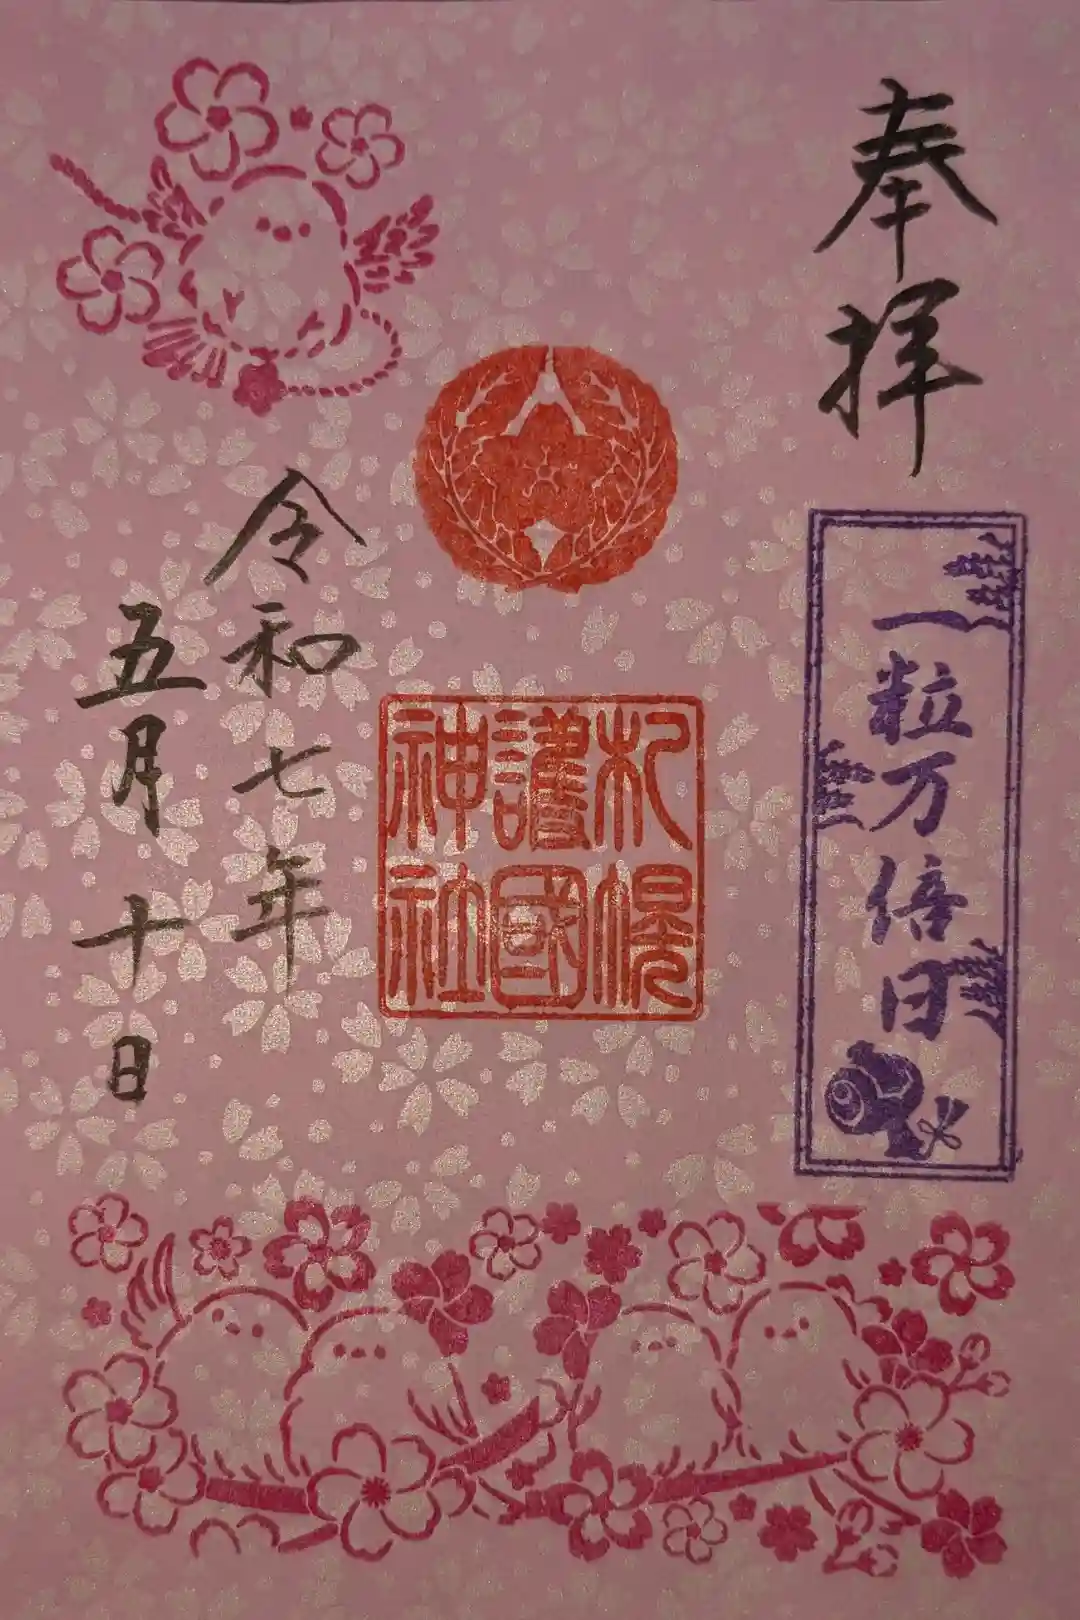 奉拝
一粒万倍日
札幌
護國
神社
令和七年
五月十日